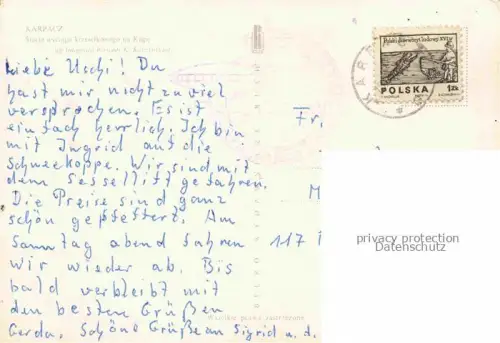 KARPACZ
Liebe Uschi! Du
hast mir nicht zu viel
versprochen. Es ist
einfach herrlich. Ich bin
mit Ingrid auf die
Schneekoppe. Wir sind mit
dem Sessellift gefahren.
Die Preise sind ganz
schön gepfeffert. Am
Sonntag abend fahren
wir wieder ab. Bis
bald verbleibt mit
den besten Grüßen
Gerda. Schöne Grüße an Sigrid u. d.
Fr.
M
117
POLSKA
1ZŁ
privacy protection
Datenschutz